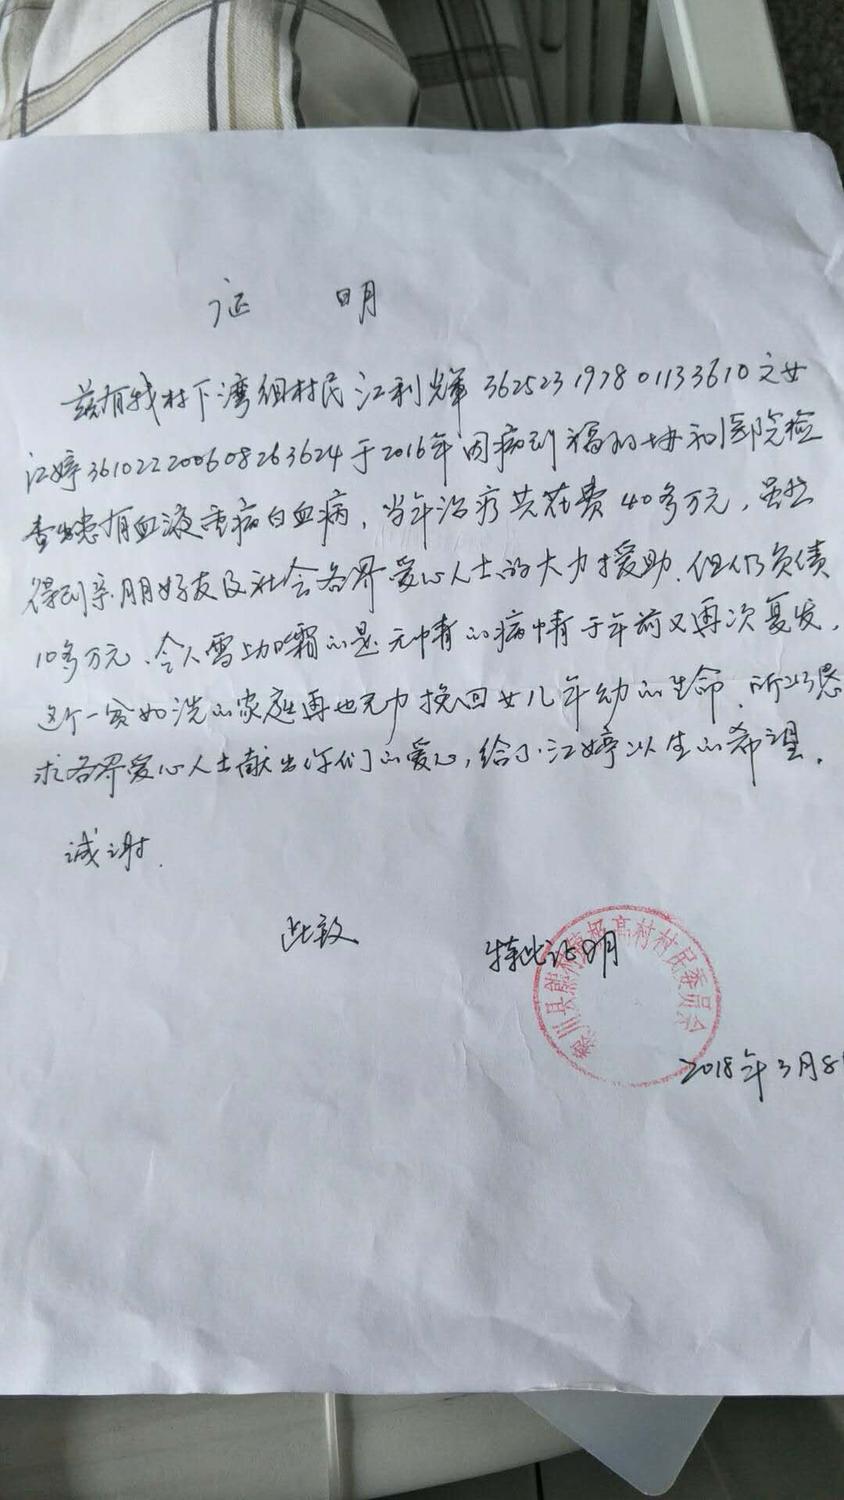 证 明
兹有我村下湾组村民江利辉362523197801133610之女
江婷361022200608263624于2016年因病到福州协和医院检
查出患有血液重病白血病，当年治疗共花费40多万元，虽然
得到亲朋好友及社会各界爱心人士的大力援助.但仍负债
10多万元、令人雪上加霜的是无情的病情于年前又再次复发，
这个一贫如洗的家庭再也无力挽回女儿年幼的生命.所以恳
求各界爱心人士献出你们的爱心，给了江婷以生的希望。
诚谢.
此致
特此证明
黎川县熊村镇极高村村民委员会
2018年3月8